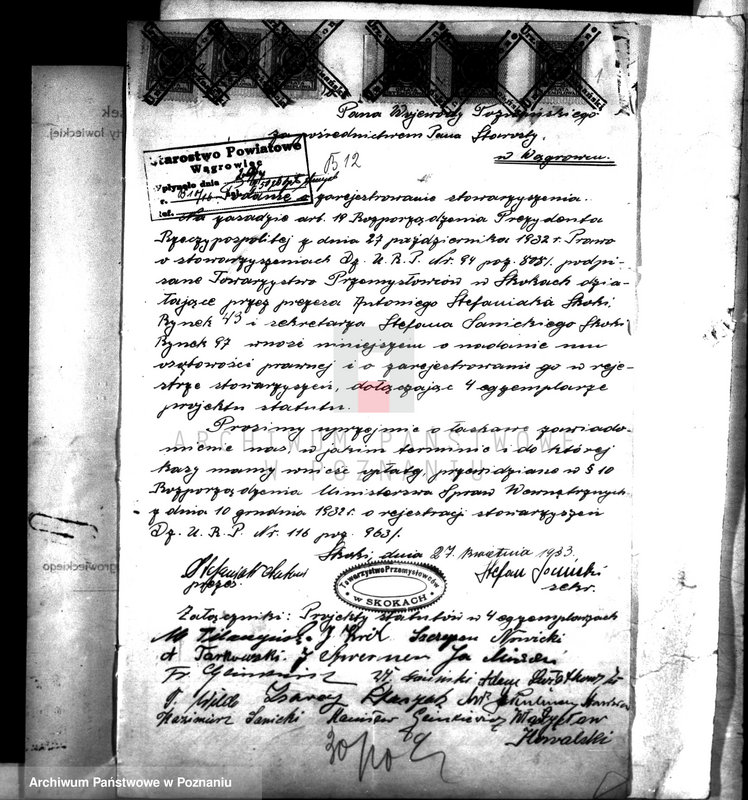 1
Pana Wojewody Poznańskiego
za pośrednictwem Pana Starosty
w Wągrowcu.
Starostwo Powiatowe
Wągrowiec
Wpłynęło dnia
B 12
Podanie o zarejestrowanie stowarzyszenia.
Na zasadzie art. 19 Rozporządzenia Prezydenta
Rzeczypospolitej z dnia 27 października 1932 r. Prawo
o stowarzyszeniach Dz. U. R. P. Nr. 94 poz. 808/. podpi-
sane Towarzystwo Przemysłowców w Skokach dzia-
łające przez prezesa Antoniego Stefaniaka Skoki
Rynek i sekretarza Stefana Sanickiego Skoki
Rynek 97 wnosi niniejszem o nadanie mu
osobowości prawnej i o zarejestrowanie go w reje-
strze stowarzyszeń, dołączając 4 egzemplarze
projektu statutu.
Prosimy uprzejmie o łaskawe zawiado-
mienie nas w jakim terminie i do której
kasy mamy wnieść wpłaty, przewidziane w § 10
Rozporządzenia Ministerstwa Spraw Wewnętrznych
z dnia 10 grudnia 1932 r. o rejestracji stowarzyszeń
Dz. U. R. P. Nr. 116 poz. 963/.
Skoki, dnia 27 kwietnia 1933.
prezes
Towarzystwo Przemysłowców
w SKOKACH
Stefan Sanicki
sekr.
Załączniki: Projekty statutów w 4 egzemplarzach
J. Król Szczepan Nowicki
A Tarkowski
Kazimierz Sanicki Władysław
Kowalski
ARCHIWUM PAŃSTWOWE
W POZNANIU
Archiwum Państwowe w Poznaniu